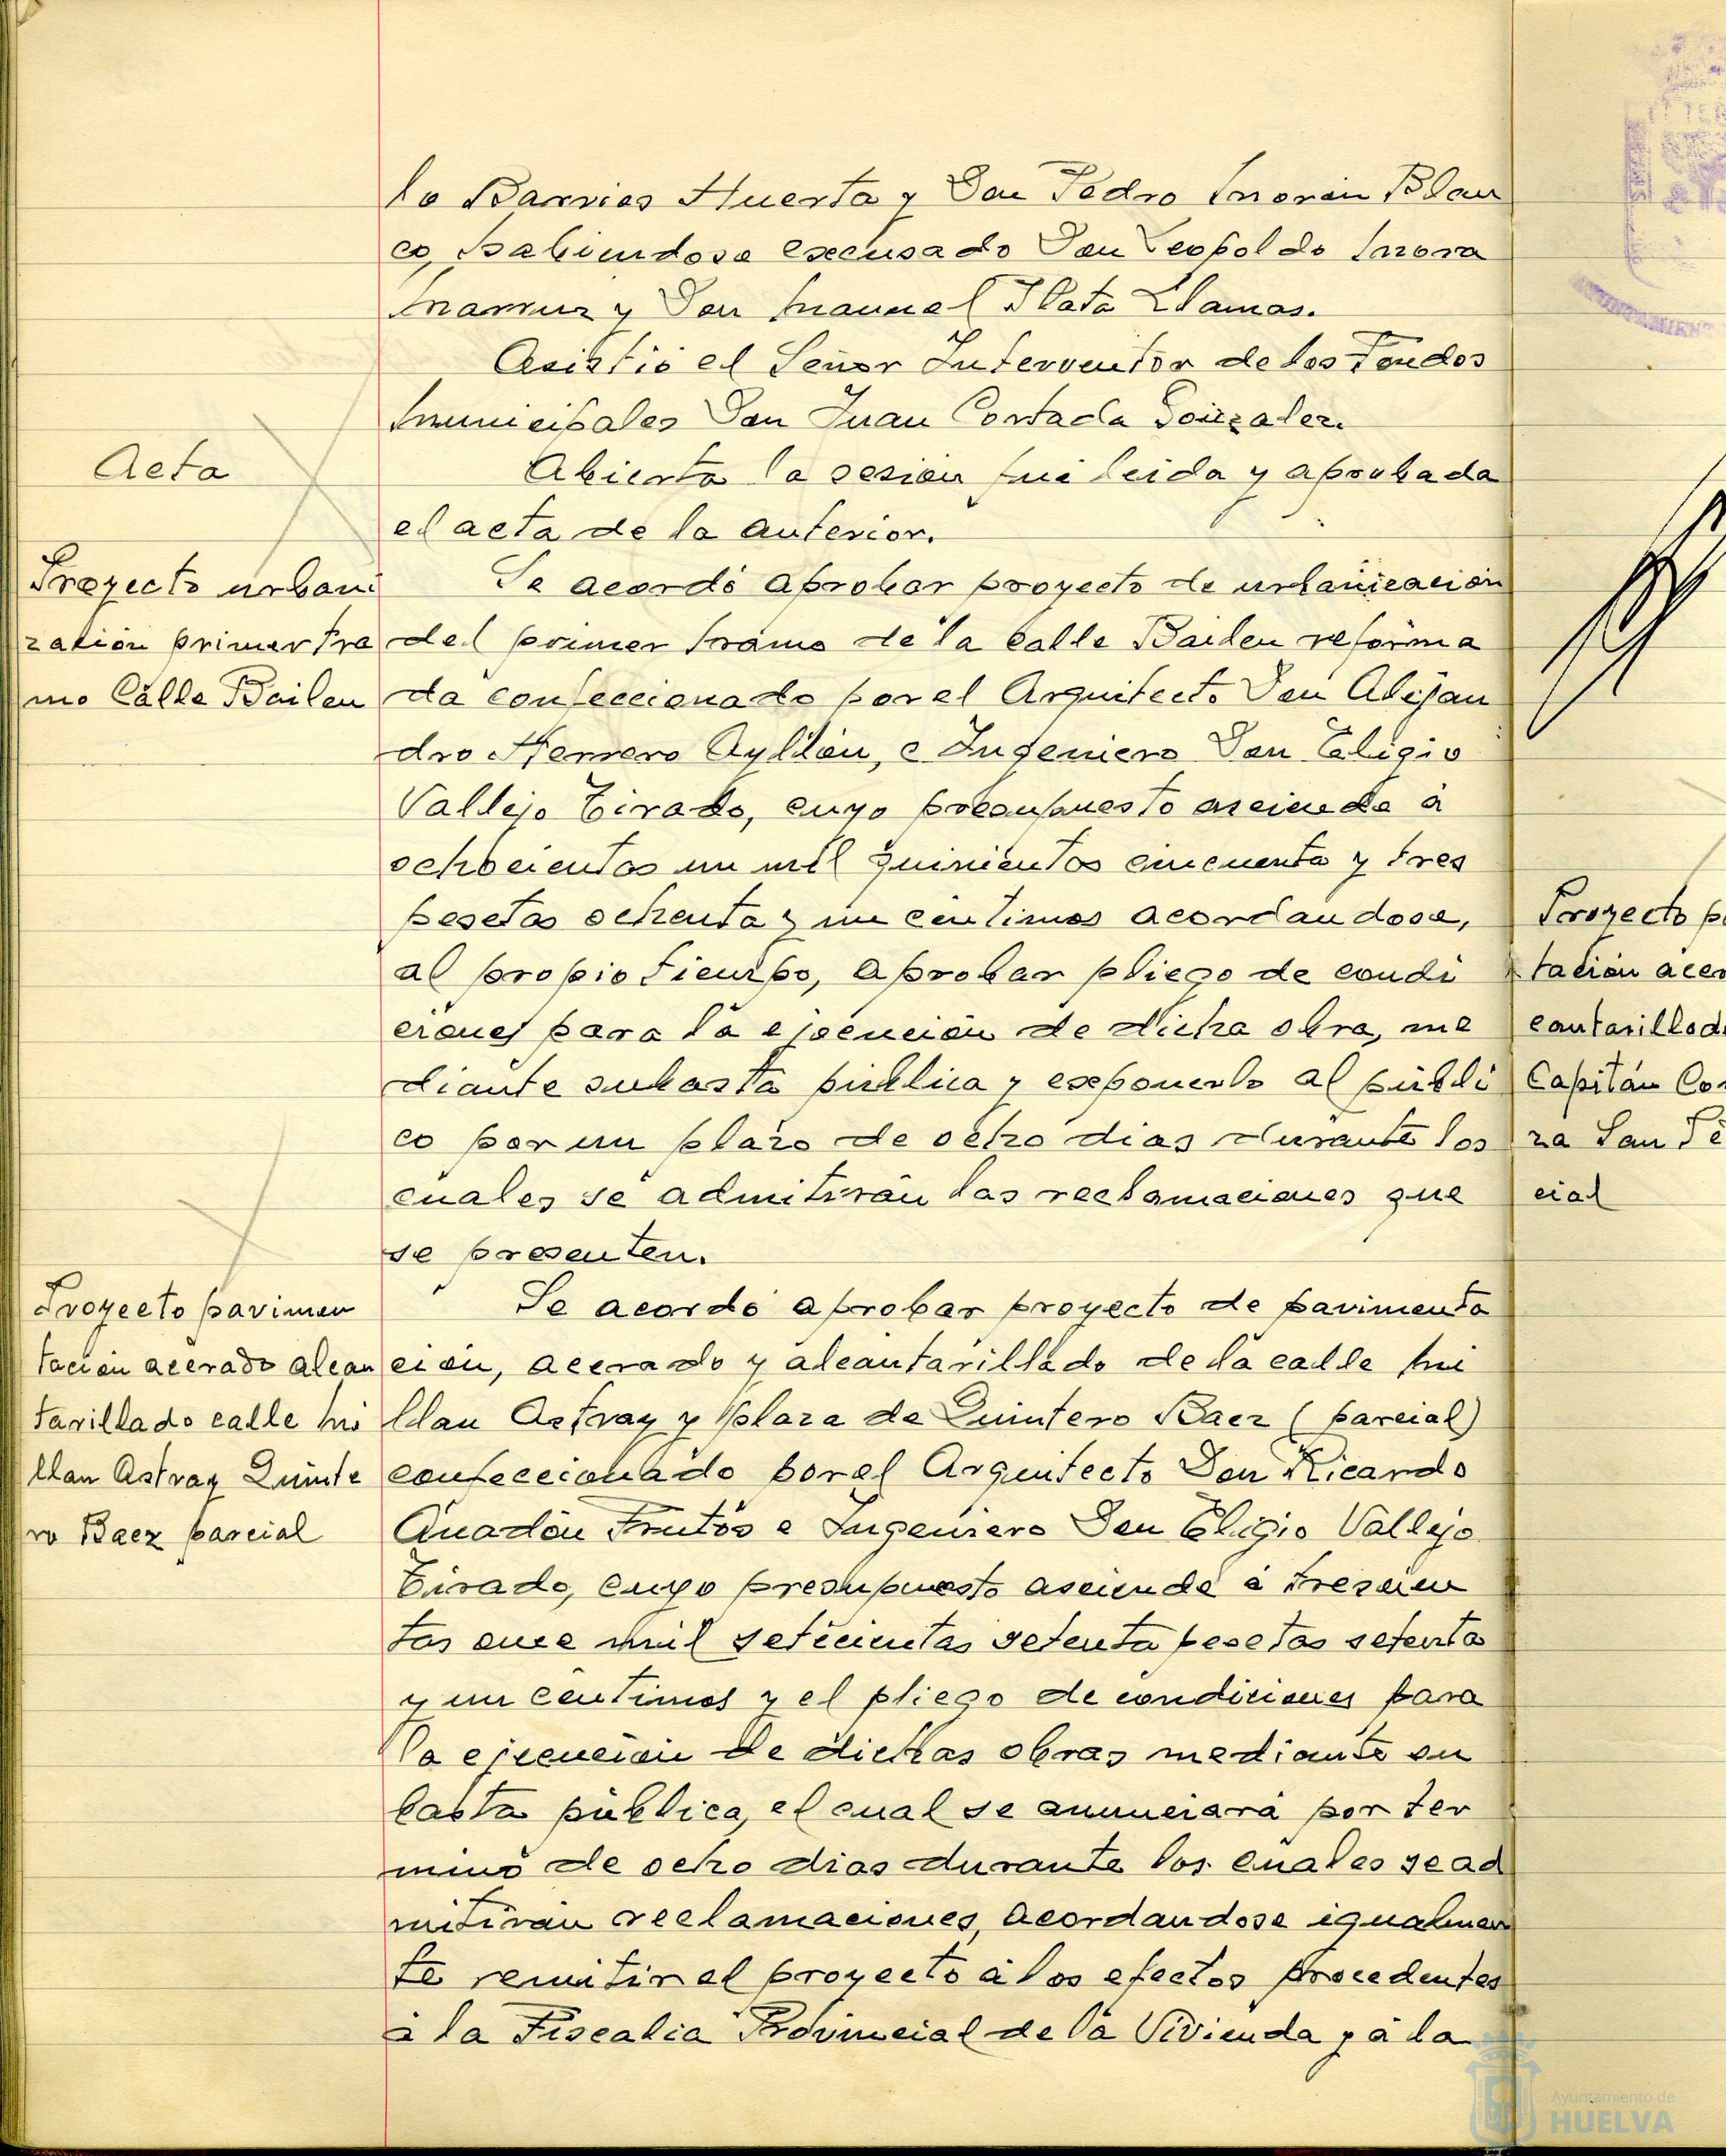 lo Barrios Huerta y Don Pedro Morón Blan
co, habiendose excusado Don Leopoldo Mora
Marruz y Don Manuel Plata Llamas.
Asistió el Señor Interventor de los Fondos
Municipales Don Juan Cortada González.
Acta
Abierta la sesión fué leida y aprobada
el acta de la anterior.
Proyecto urbani
zación primer tra
mo Calle Bailen
Se acordó aprobar proyecto de urbanización
del primer tramo de la calle Bailen reforma
da confeccionado por el Arquitecto Don Alejan
dro Herrero Ayllón, e Ingeniero Don Eligio
Vallejo Tirado, cuyo presupuesto asciende á
ochocientos un mil quinientos cincuenta y tres
pesetas ochenta y un céntimos acordandose,
al propio tiempo, aprobar pliego de condi
ciones para la ejecución de dicha obra, me
diante subasta pública y exponerlo al públi
co por un plazo de ocho dias durante los
cuales se admitirán las reclamaciones que
se presenten.
Proyecto pavimen
tación acerado alcan
tarillado calle Mi
llan Astray Quinte
ro Baez parcial
Se acordó aprobar proyecto de pavimenta
ción, acerado y alcantarillado de la calle Mi
llan Astray y plaza de Quintero Baez (parcial)
confeccionado por el Arquitecto Don Ricardo
Anadón Frutos e Ingeniero Don Eligio Vallejo
Tirado, cuyo presupuesto asciende á trescien
tas once mil setecientas setenta pesetas setenta
y un céntimos y el pliego de condiciones para
la ejecución de dichas obras mediante su
basta pública, el cual se anunciará por ter
mino de ocho dias durante los cuales se ad
mitirán reclamaciones, acordandose igualmen
te remitir el proyecto á los efectos procedentes
á la Fiscalia Provincial de la Vivienda y á la
Proyecto p
tación acer
cantarillad
Capitán Co
za San Pe
cial
AYUNTAMIENT
Ayuntamiento de
HUELVA